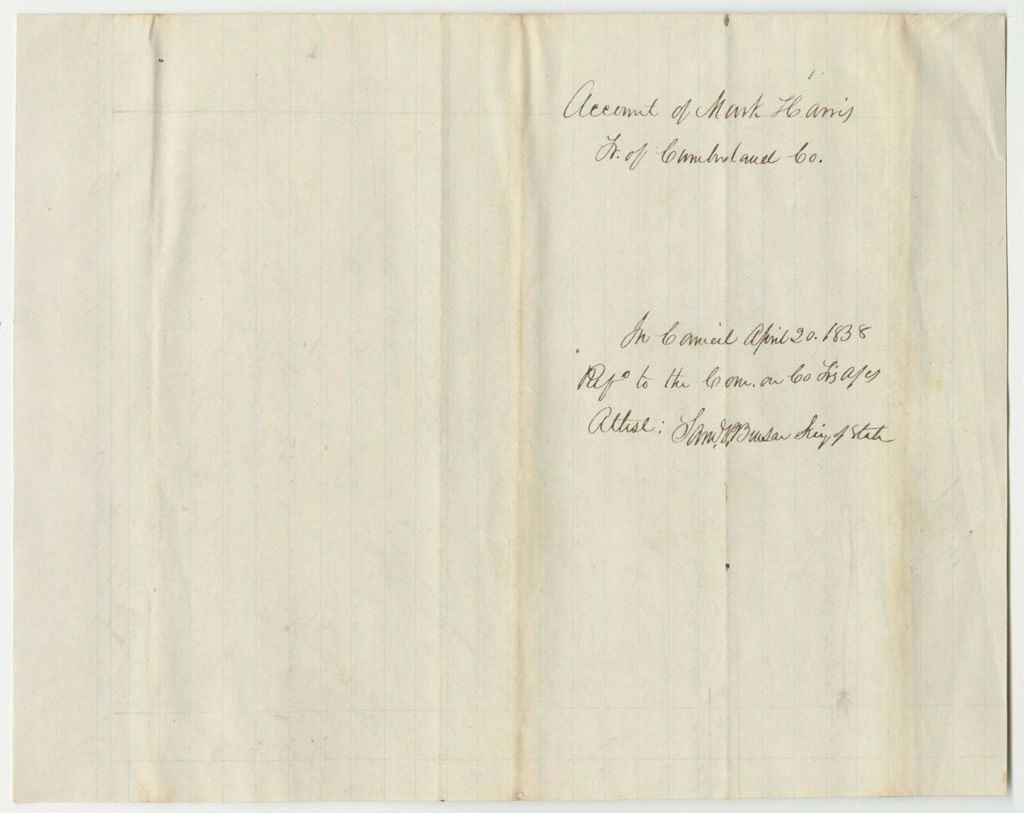 Account of Mark Harris
Tr. of Cumberland Co.
In Council April 20. 1838
Refd to the Com. on Co Trs a/cs
Attest: Saml P. Benson Secy of State